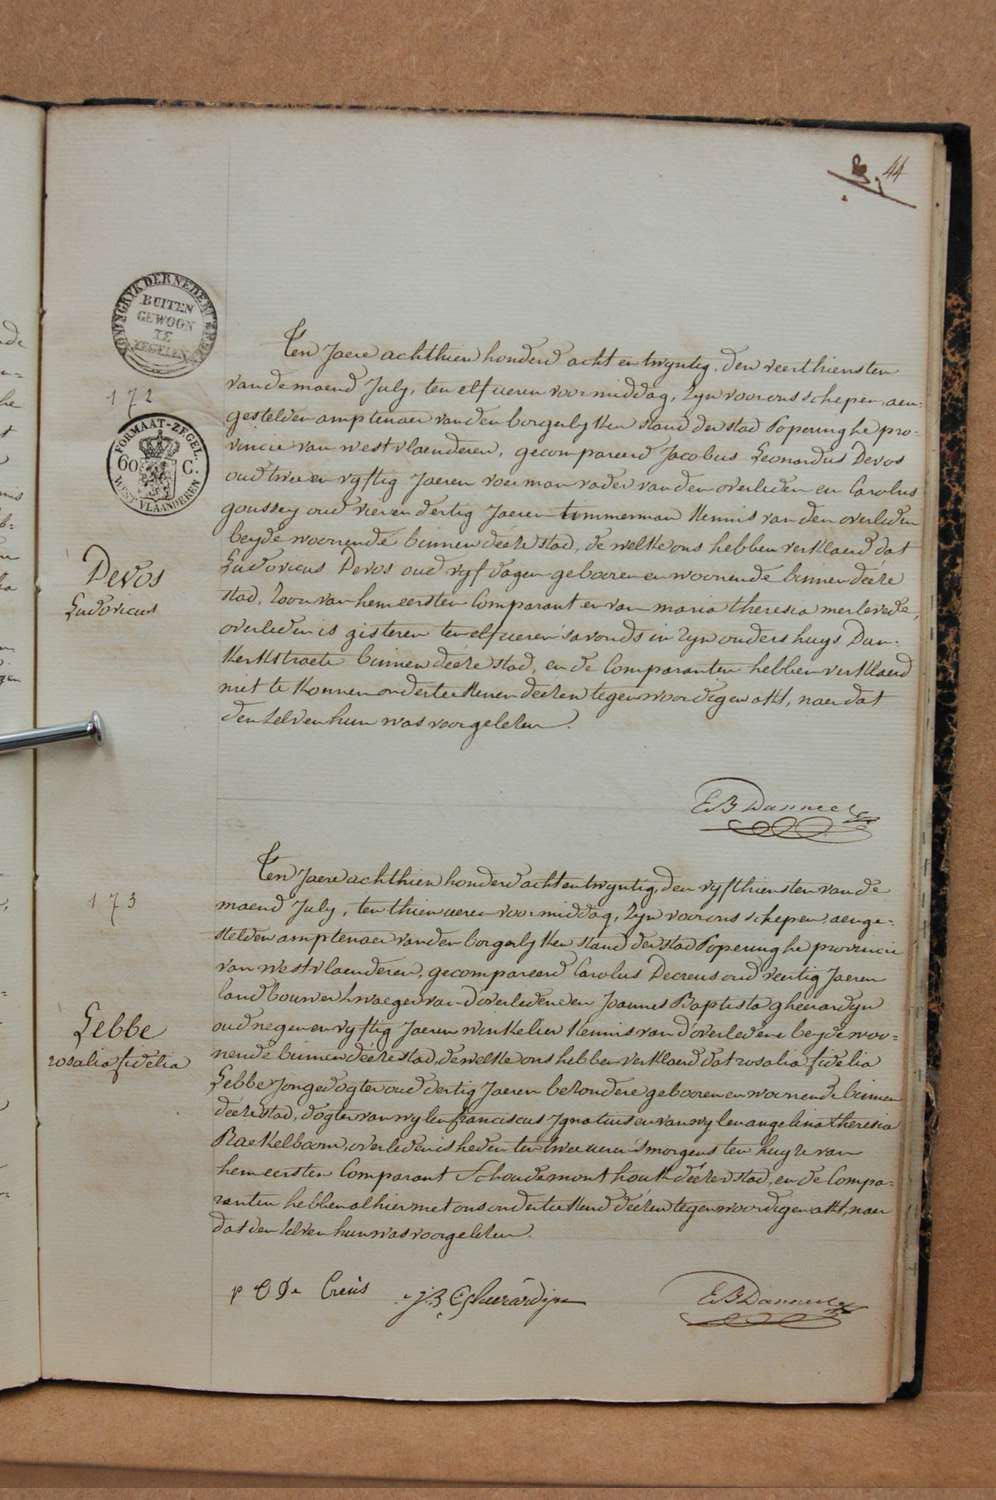 44
KONINGRYK DER NEDERLANDEN
BUITEN
GEWOON
TE
ZEGELEN
172
FORMAAT-ZEGEL
60 C.
WEST-VLAANDEREN
Devos
Ludovicus
Ten Jaere achthien honderd acht en twyntig, den veerthiensten
van de maend July, ten elf ueren voormiddag, Zyn voor ons schepen aen-
gestelden amptenaer van den borgerlyken stand der stad Poperinghe pro-
vincie van westvlaenderen, gecompareerd Jacobus Leonardus Devos
oud twee en vyftig Jaeren voerman vader van den overleden en Carolus
goussey oud vier en dertig Jaeren timmerman kennis van den overleden
beyde woonende binnen deéze stad, de welke ons hebben verklaerd dat
Ludovicus Devos oud vyf dagen gebooren en woonende binnen deéze
stad, Zoon van hem eersten Comparant en van maria theresia merlevede,
overleden is gisteren ten elf ueren s'avonds in Zyn ouders huys Dun-
kerkstraete binnen deéze stad, en de Comparanten hebben verklaerd
niet te konnen onderteekenen deézen tegenwoordigen akt, naer dat
den zelven hun was voorgelezen.
E B Danneel
173
Lebbe
rosalia fidelia
Ten Jaere achthien honderd acht en twyntig, den vyfthiensten van de
maend July, ten thien ueren voormiddag, Zyn voor ons schepen aenge-
stelden amptenaer van den borgerlyken stand der stad Poperinghe provincie
van westvlaenderen, gecompareerd Carolus Decreus oud veertig Jaeren
landbouwer Zwaeger van d'overledene en Joannes Baptista gheerardyn
oud negen en vyftig Jaeren winkelier kennis van d'overledene beyde woo-
nende binnen deéze stad, de welke ons hebben verklaerd dat rosalia fidelia
Lebbe Jongedogter oud dertig Jaeren bezondere gebooren en woonende binnen
deéze stad, dogter van wylen franciscus Ignatius en van wylen angelina theresia
Raekelboom, overleden is heden ten twee ueren s'morgens ten huyze van
hem eersten Comparant Schoudemonthoek deézer stad, en de Compa-
ranten hebben alhier met ons onderteekend deézen tegenwoordigen akt, naer
dat den zelven hun was voorgelezen.
p C De Creüs
j B Gheerardijn
E B Danneel